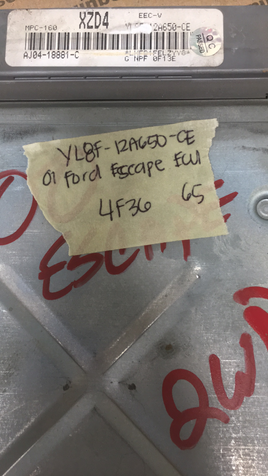 XZD4
EEC-V
MPC-160
12A650-CE
AJ04-18881-C
G NPF 0F13E
QC
YL8F-12A650-CE
01 Ford Escape ECU
4F36 65
ESCAPE
2W